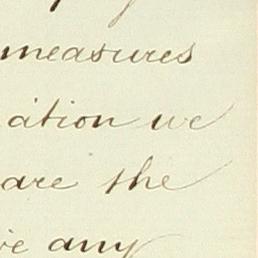 measures
ation we
are the
any